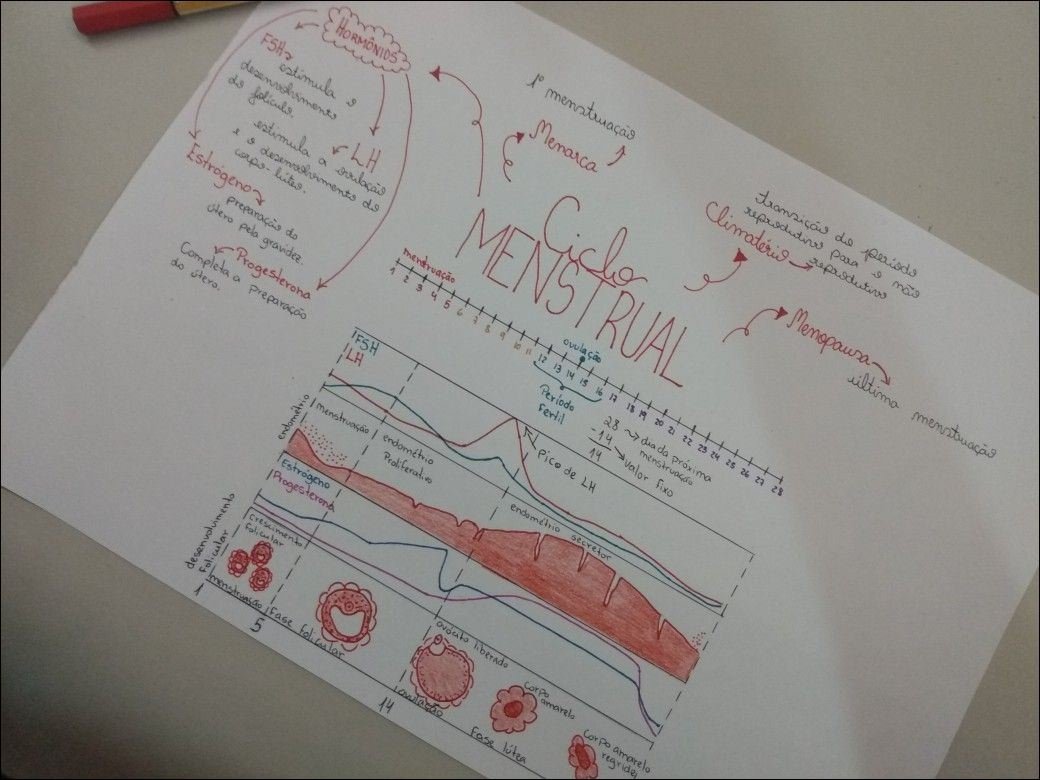 HORMÔNIOS
FSH
estimula o
desenvolvimento
do folículo.
LH
estimula a ovulação
e o desenvolvimento do
corpo-lúteo.
Estrógeno
preparação do
útero pela gravidez.
Progesterona
Completa a preparação
do útero.
1ª menstruação
Menarca
Ciclo
MENSTRUAL
Climatério
transição do período
reprodutivo para o não
reprodutivo
Menopausa
última menstruação
menstruação
1 2 3 4 5 6 7 8 9 10 11 12 13 14 15 16 17 18 19 20 21 22 23 24 25 26 27 28
ovulação
Período
Fértil
28 dia da próxima
menstruação
-14 valor fixo
14
FSH
LH
Pico de LH
endométrio
menstruação
endométrio
Proliferativo
endométrio secretor
Estrógeno
Progesterona
desenvolvimento
folicular
crescimento
folicular
ovócito liberado
corpo
amarelo
corpo amarelo
menstruação
Fase folicular
ovulação
Fase lútea
1
5
14